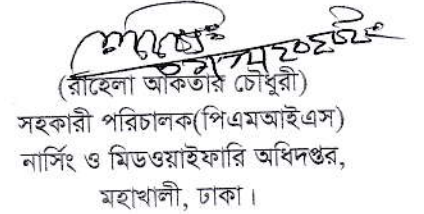 (রাহেলা আকতার চৌধুরী)
সহকারী পরিচালক(পিএমআইএস)
নার্সিং ও মিডওয়াইফারি অধিদপ্তর,
মহাখালী, ঢাকা।